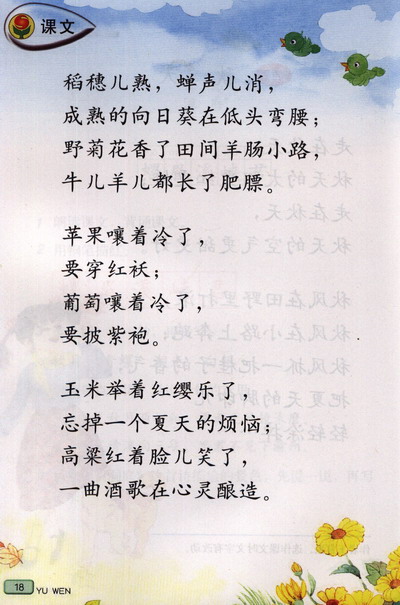 课文
稻穗儿熟，蝉声儿消，
成熟的向日葵在低头弯腰；
野菊花香了田间羊肠小路，
牛儿羊儿都长了肥膘。
苹果嚷着冷了，
要穿红袄；
葡萄嚷着冷了，
要披紫袍。
玉米举着红缨乐了，
忘掉一个夏天的烦恼；
高粱红着脸儿笑了，
一曲酒歌在心灵酿造。
18
YU WEN